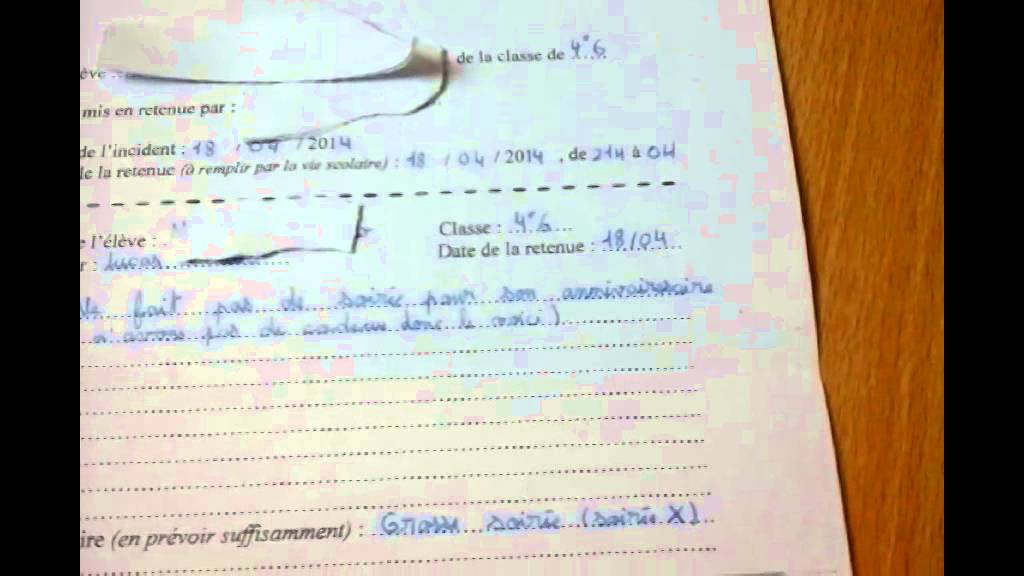 ève : de la classe de 4°6
mis en retenue par :
de l'incident : 18 / 04 / 2014
de la retenue (à remplir par la vie scolaire) : 18 / 04 / 2014 , de 21H à 04
e l'élève : Classe : 4°6
r : Lucas Date de la retenue : 18/04
fait pas de soirée pour son
pas de donc le voici)
ire (en prévoir suffisamment) : Grosse soirée (soirée X)